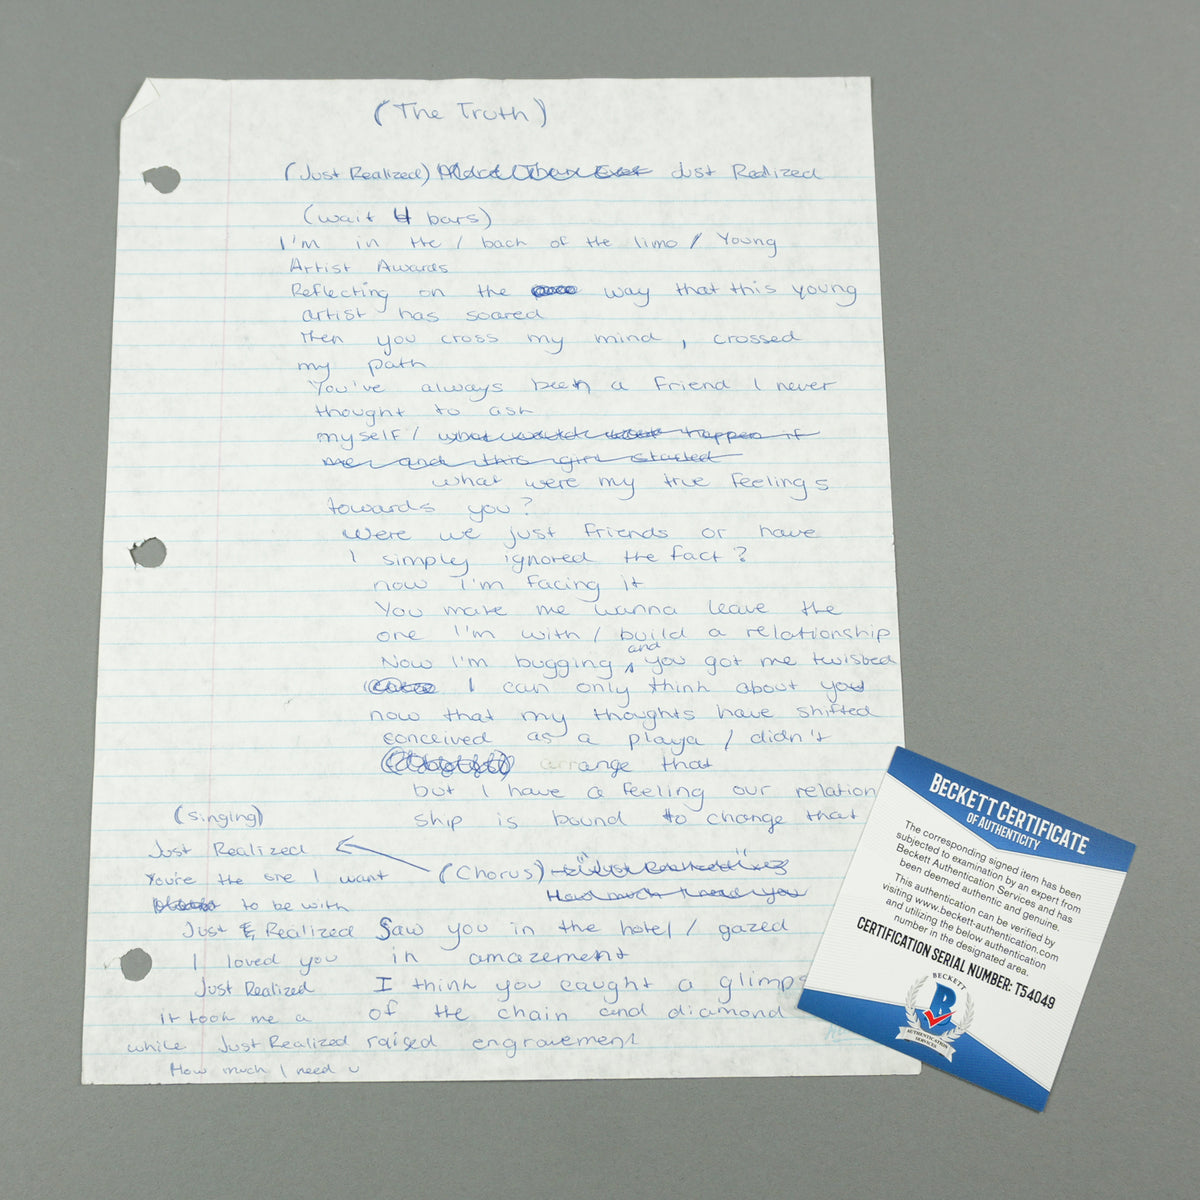 (The Truth)
(Just Realized) Just Realized
(wait 4 bars)
I'm in the / back of the limo / Young
Artist Awards
Reflecting on the way that this young
artist has soared
Then you cross my mind, crossed
my path
You've always been a friend I never
thought to ask
myself / what would happen if
me and this girl started
what were my true feelings
towards you?
Were we just friends or have
I simply ignored the fact?
now I'm facing it
You make me wanna leave the
one I'm with / build a relationship
and
Now I'm bugging ʌ you got me twisted
I can only think about you
now that my thoughts have shifted
conceived as a playa / didn't
arrange that
but I have a feeling our relation
ship is bound to change that
(Chorus) "Just Realized"
How much I need you
Saw you in the hotel / gazed
in amazement
I think you caught a glimps
of the chain and diamond
raised engravement
(singing)
Just Realized
You're the one I want
to be with
Just Realized
I loved you
Just Realized
It took me a
while Just Realized
How much I need u
BECKETT CERTIFICATE
OF AUTHENTICITY
The corresponding signed item has been
subjected to examination by an expert from
Beckett Authentication Services and has
been deemed authentic and genuine.
This authentication can be verified by
visiting www.beckett-authentication.com
and utilizing the below authentication
number in the designated area.
CERTIFICATION SERIAL NUMBER: T54049
BECKETT
B
AUTHENTICATION
SERVICES